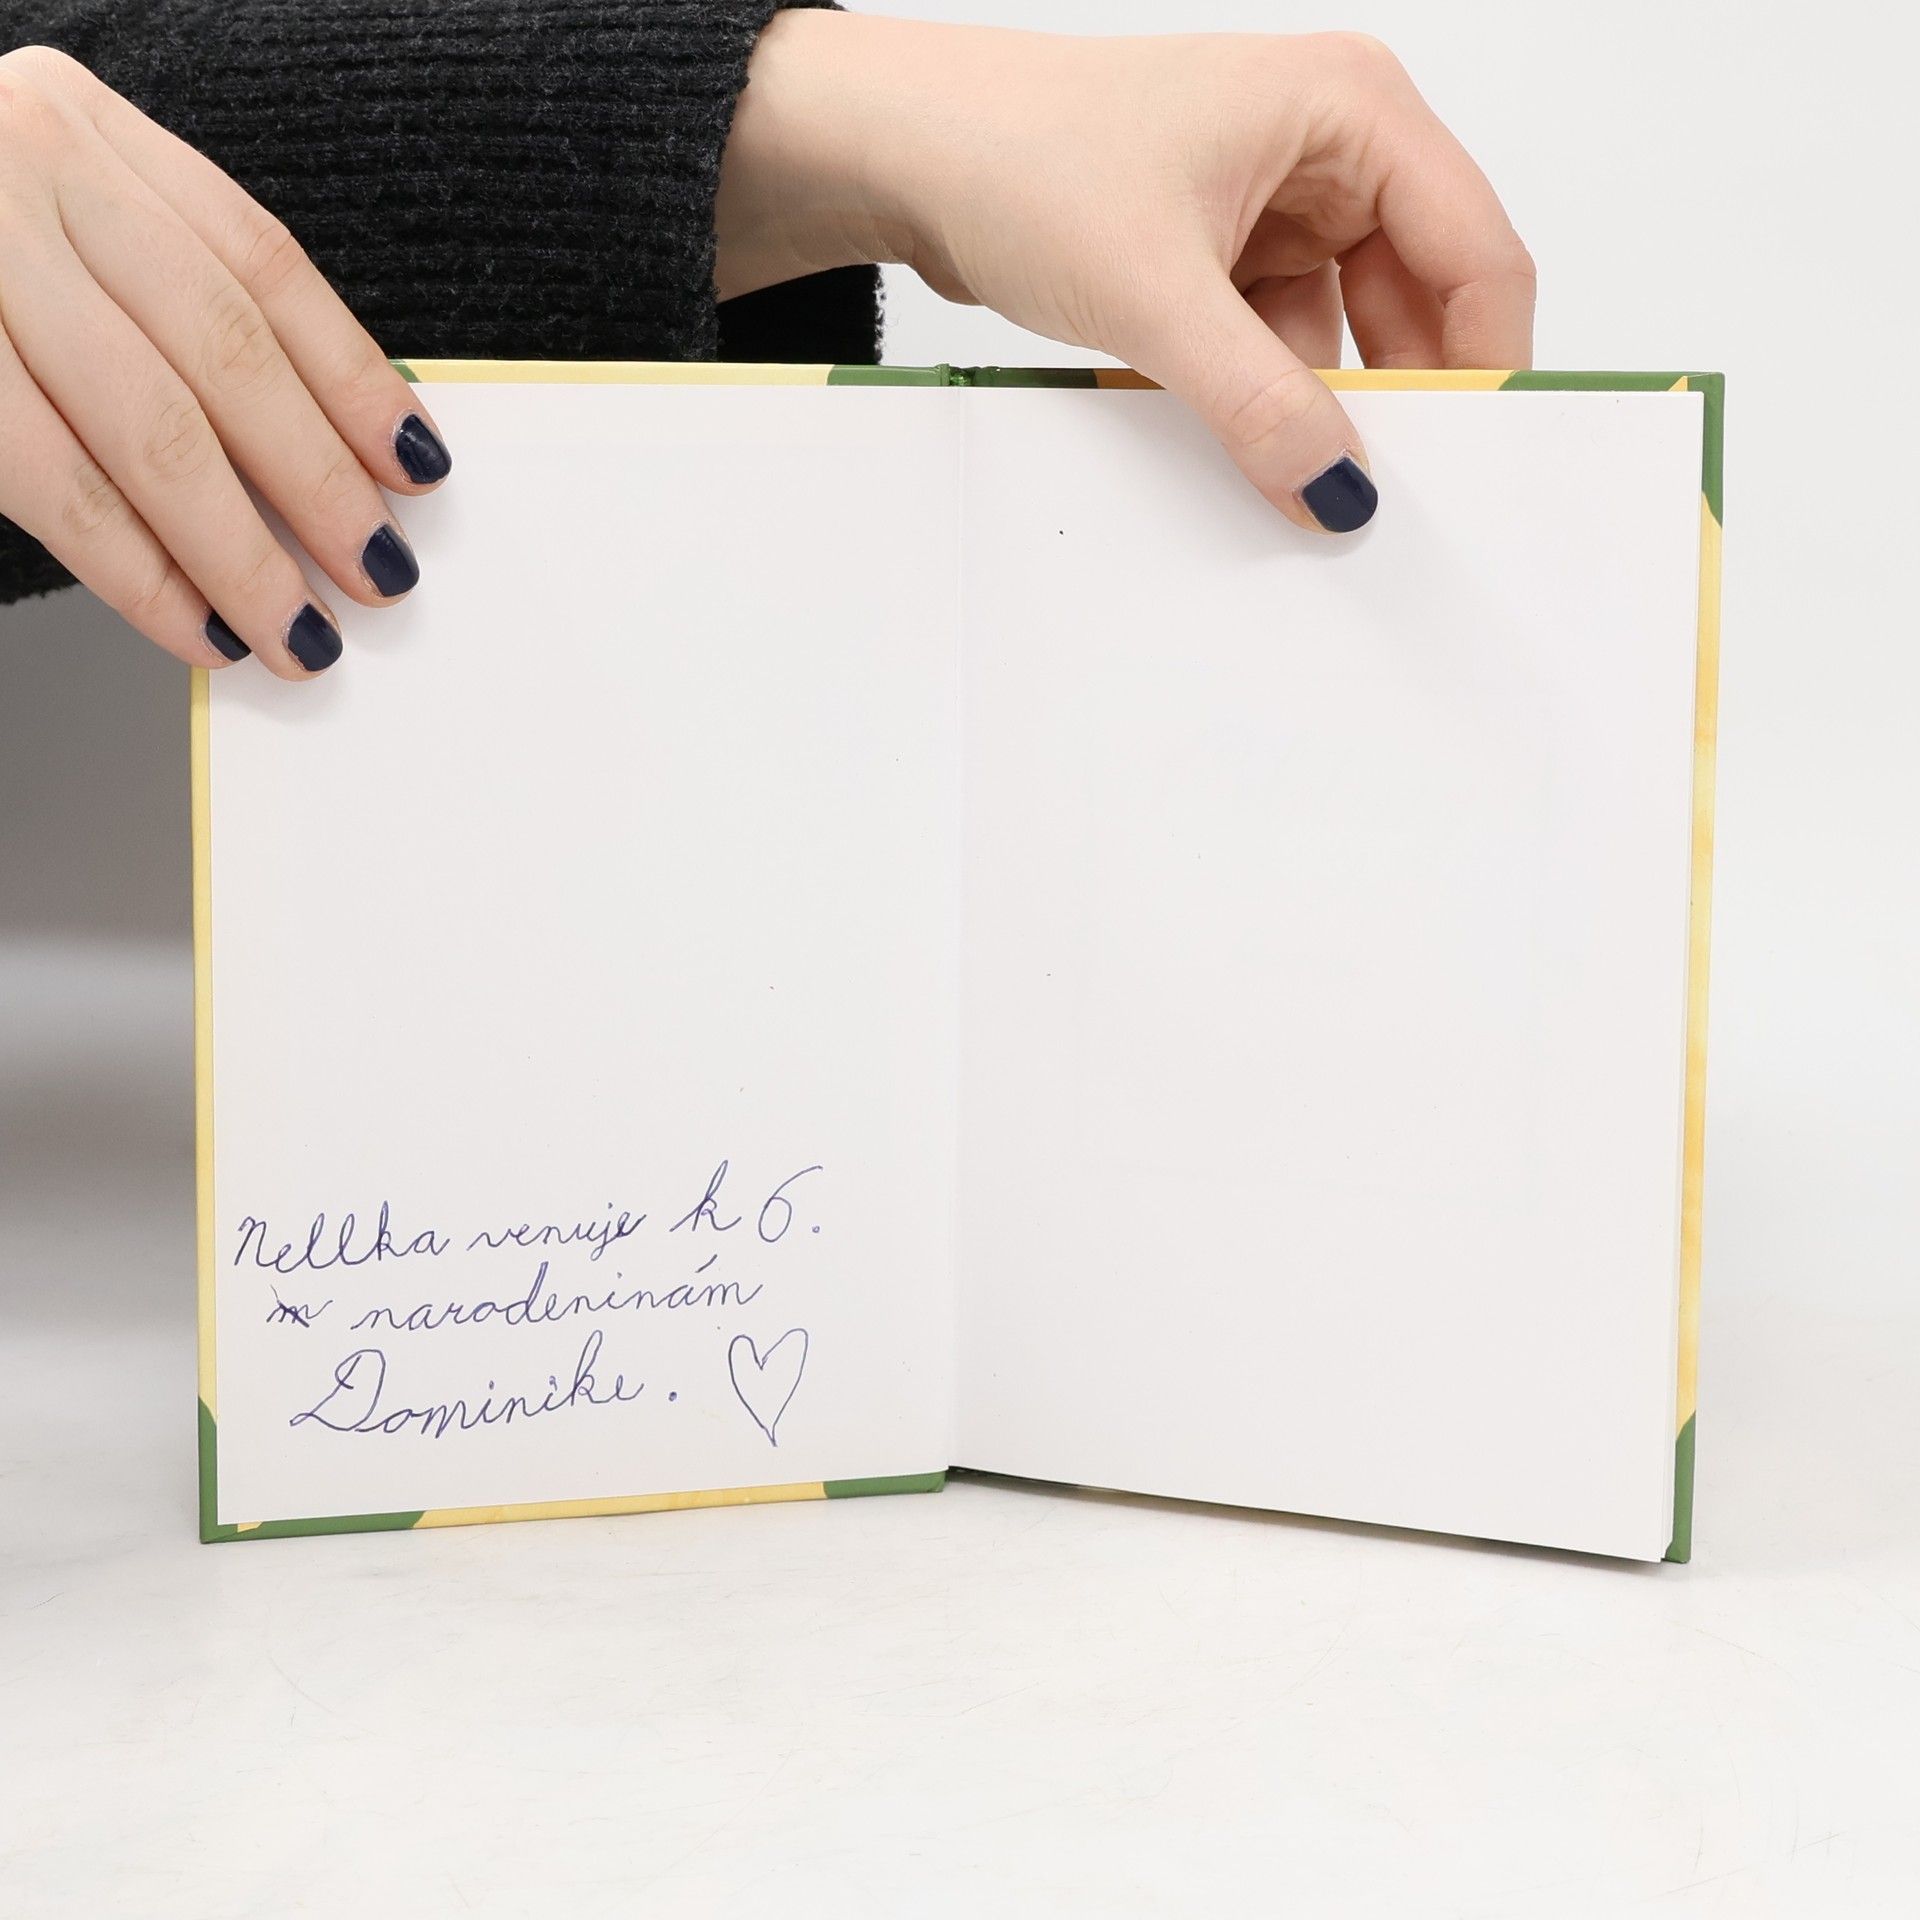 Nellka venuje k 6.
narodeninám
Dominike. ♡